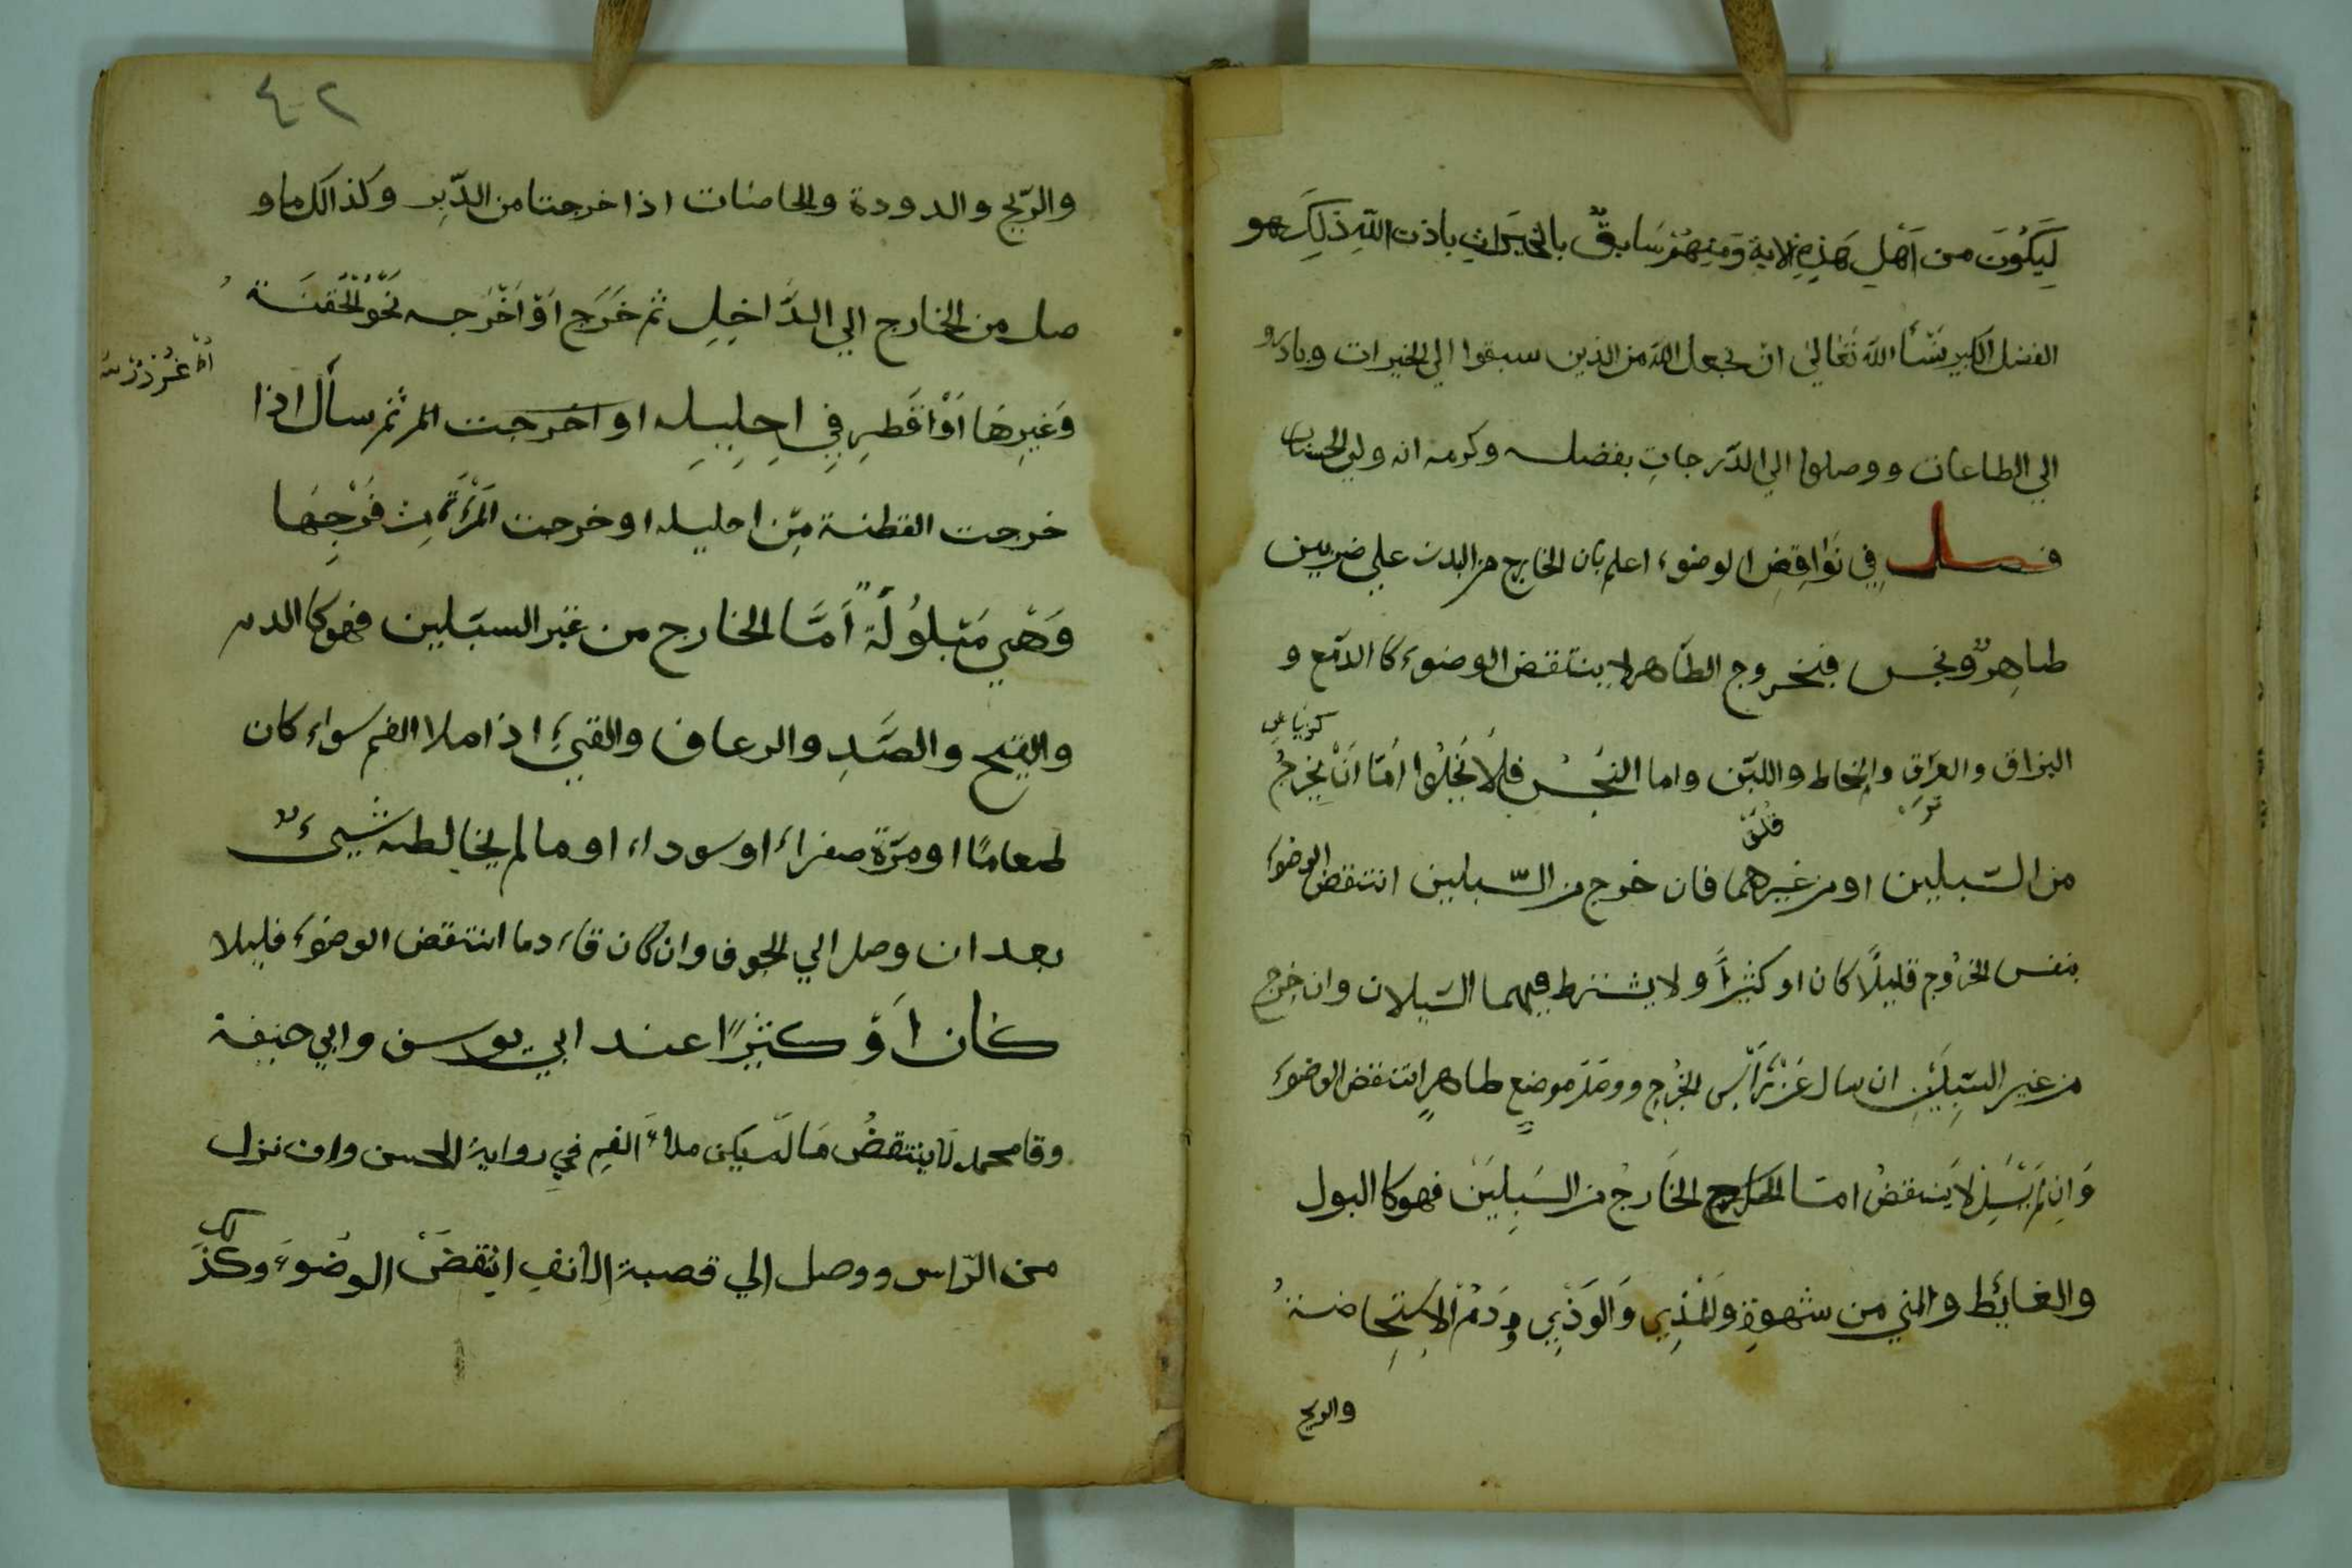 لِيَكُونَ من اَهْلِ هَذِهِ الاية وَمِنْهُمْ سَابِقٌ بالخَيْرَاتِ باذن اللّهِ ذَلِكَ هو
الفضل الكبير نَسْأ اللّه تَعَالي ان يجعل الله من الذين سبقوا الي الخيرات وبادَرُو
الي الطاعات ووصلوا الي الدّرجاتِ بفضله وكرمه انه ولي الحسنات
فصل في نَوَاقِضِ الوضوء اعلم بان الخارج من البدن علي ضربين
طاهِرٌ ونجس فبخروج الطّاهر لا ينتقض الوضوءَ كا الدّمع و
البزاق والعرَاقِ والمخاط واللبَن واما النجُس فلَا يَخْلُوا امَّا اَنْ يَخْرجُ
من السّبيلين او من غيرهما فان خرج من السّبيلين انتقض الوضوءَ
بنفس الخرُوج قليلًا كان او كثيراً ولا يشترط فيهما السّيلان وان خرج
من غير السّبِيلَيْنِ ان سال عَنْ رَأْسِ الجُرْحِ ووصَل موضعٍ طاهرٍ انتقض الوضوءَ
وَاِن لَمْ يَسِلْ لا يَنتقضُ امّا الخارج الخَارجُ من السَبِيلَيْن فهو كا البول
والغائِط والمني من شهوةٍ والمَذِي وَالوَذِي ودَمُ الاِسْتِحَاضَةُ
والريح
٤٢
والرّيح والدودة والحاصَات اذا خرجتا من الدّبِرِ وكذالك ما و
صل من الخارج الي الدَّاخِلِ ثم خَرَج اَوْ اَخْرَجه نَحْوُ الحُقنَةُ
وَغَيرِهَا اَوْ اقَطِرِ فِي اِحِلِيلِه او اخرجت المر ثم سأل اذا
خرجت القطنة مِن احليله او خرجت المَرْأَةُ مِن فَرْجِهَا
وَهْيَ مَبْلُولَةً اَمَّا الخارج من غير السبَلين فهو كا الدم
والقيح والصَّدِ والرعاف والقيْءِ اذا ملا الفم سواء كان
طعامًا او مِرّة صفراءَ او سوداء او مالم يخالطه شيءٌ
بعد ان وصل الي الجوف وان كان قاء دما انتقض الوضوءَ قليلا
كَان اَوْ كثيرًا عند ابي يوسف وابي حنيفة
وقا محمد لَا ينتقضُ مَا لَم يكن ملأَ الفمِ في روايةُ الحسن وان نزل
من الرّاس ووصل الي قصبة الانفِ انتقَضَ الوضوءَ وكذَلك